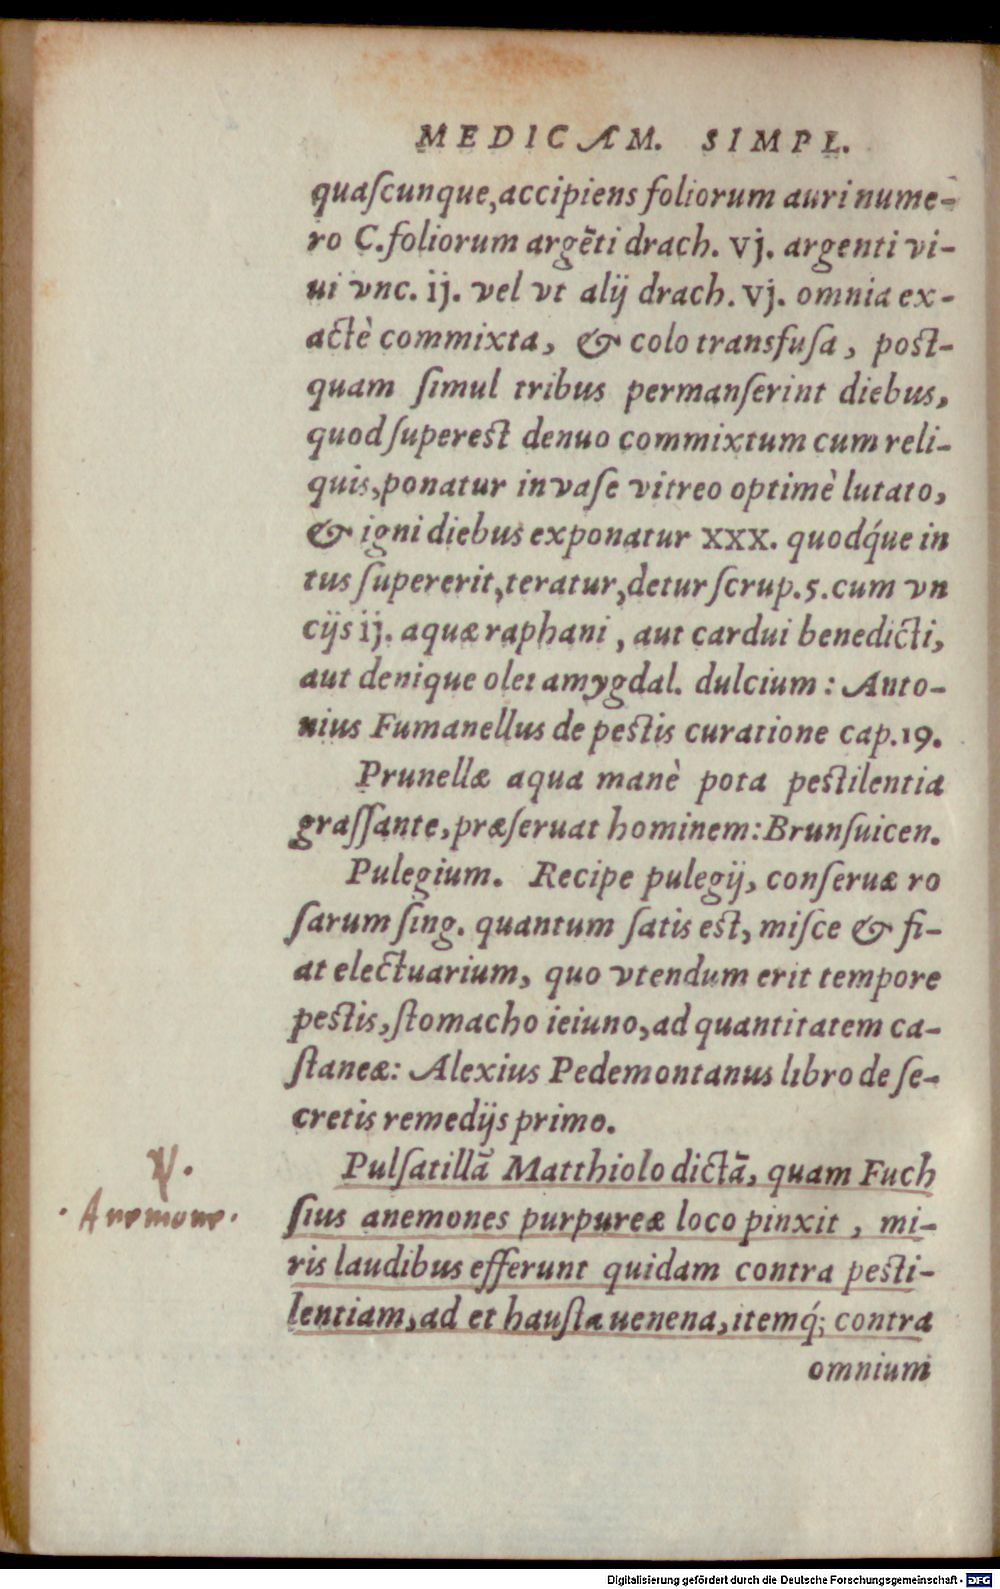 MEDICAM. SIMPL.
quaſcunque, accipiens foliorum auri nume-
ro C. foliorum argēti drach. vj. argenti vi-
ui vnc. ij. vel vt alij drach. vj. omnia ex-
actè commixta, & colo transfuſa, post-
quam ſimul tribus permanſerint diebus,
quod ſuperest denuo commixtum cum reli-
quis, ponatur in vaſe vitreo optimè lutato,
& igni diebus exponatur XXX. quodq́ue in
tus ſupererit, teratur, detur ſcrup. 5. cum vn
cijs ij. aquæ raphani, aut cardui benedicti,
aut denique olei amygdal. dulcium: Anto-
nius Fumanellus de pestis curatione cap. 19.
Prunellæ aqua manè pota pestilentia
graſſante, præſeruat hominem: Brunſuicen.
Pulegium. Recipe pulegij, conſeruæ ro
ſarum ſing. quantum ſatis est, miſce & fi-
at electuarium, quo vtendum erit tempore
pestis, ſtomacho ieiuno, ad quantitatem ca-
ſtaneæ: Alexius Pedemontanus libro de ſe-
cretis remedijs primo.
Pulſatillā Matthiolo dictā, quam Fuch
ſius anemones purpureæ loco pinxit, mi-
ris laudibus efferunt quidam contra pesti-
lentiam, ad et hauſta uenena, itemq́; contra
omnium
· Anemone ·
Digitalisierung gefördert durch die Deutsche Forschungsgemeinschaft - DFG